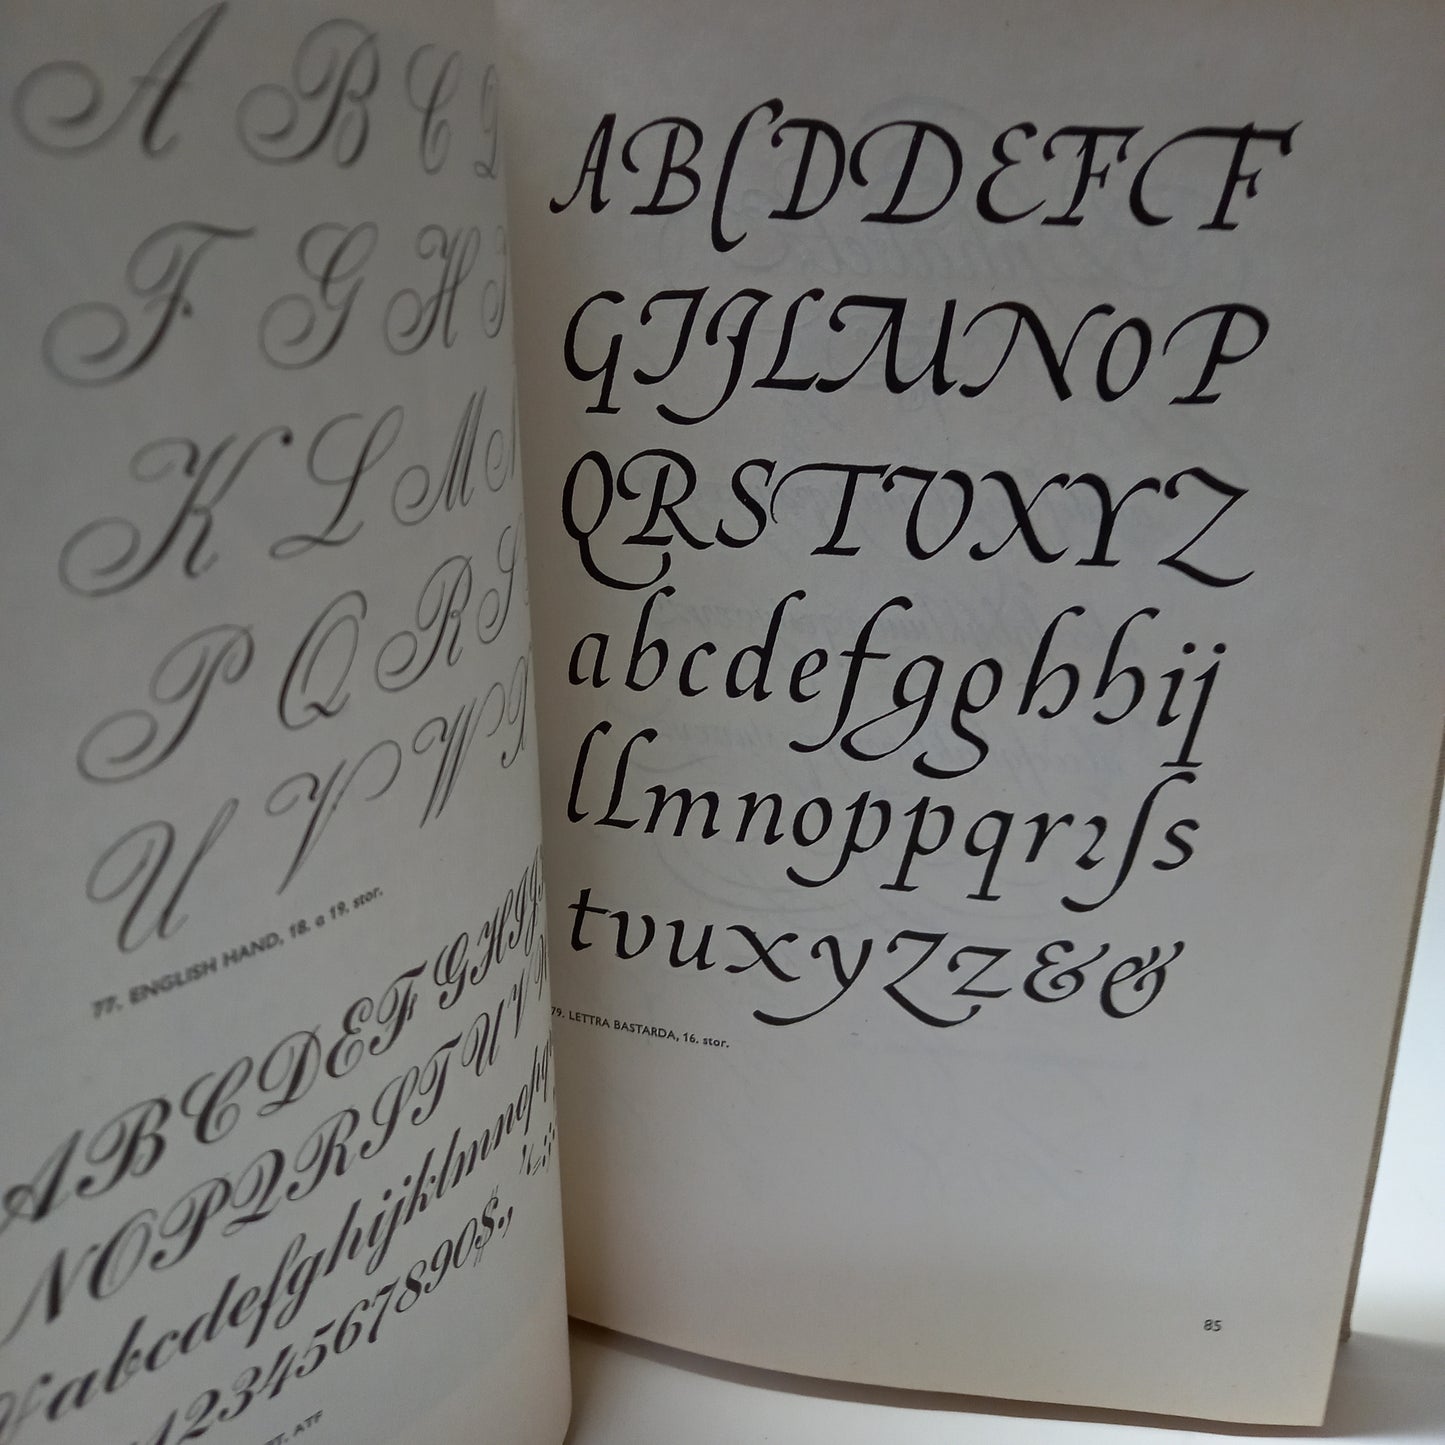 A B C D
F G H I
K L M N
P Q R S
U V W X
77. ENGLISH HAND, 18. a 19. stor.
A B C D E F G H I J
N O P Q R S T U V W
a b c d e f g h i j k l m n o p q
1 2 3 4 5 6 7 8 9 0 $ . ,
ATF
A B C D D E F F
G I J L M N O P
Q R S T V X Y Z
a b c d e f g g h h i j
l l m n o p p q r ꝛ ſ s
t v u x y z z & &
79. LETTRA BASTARDA, 16. stor.
85